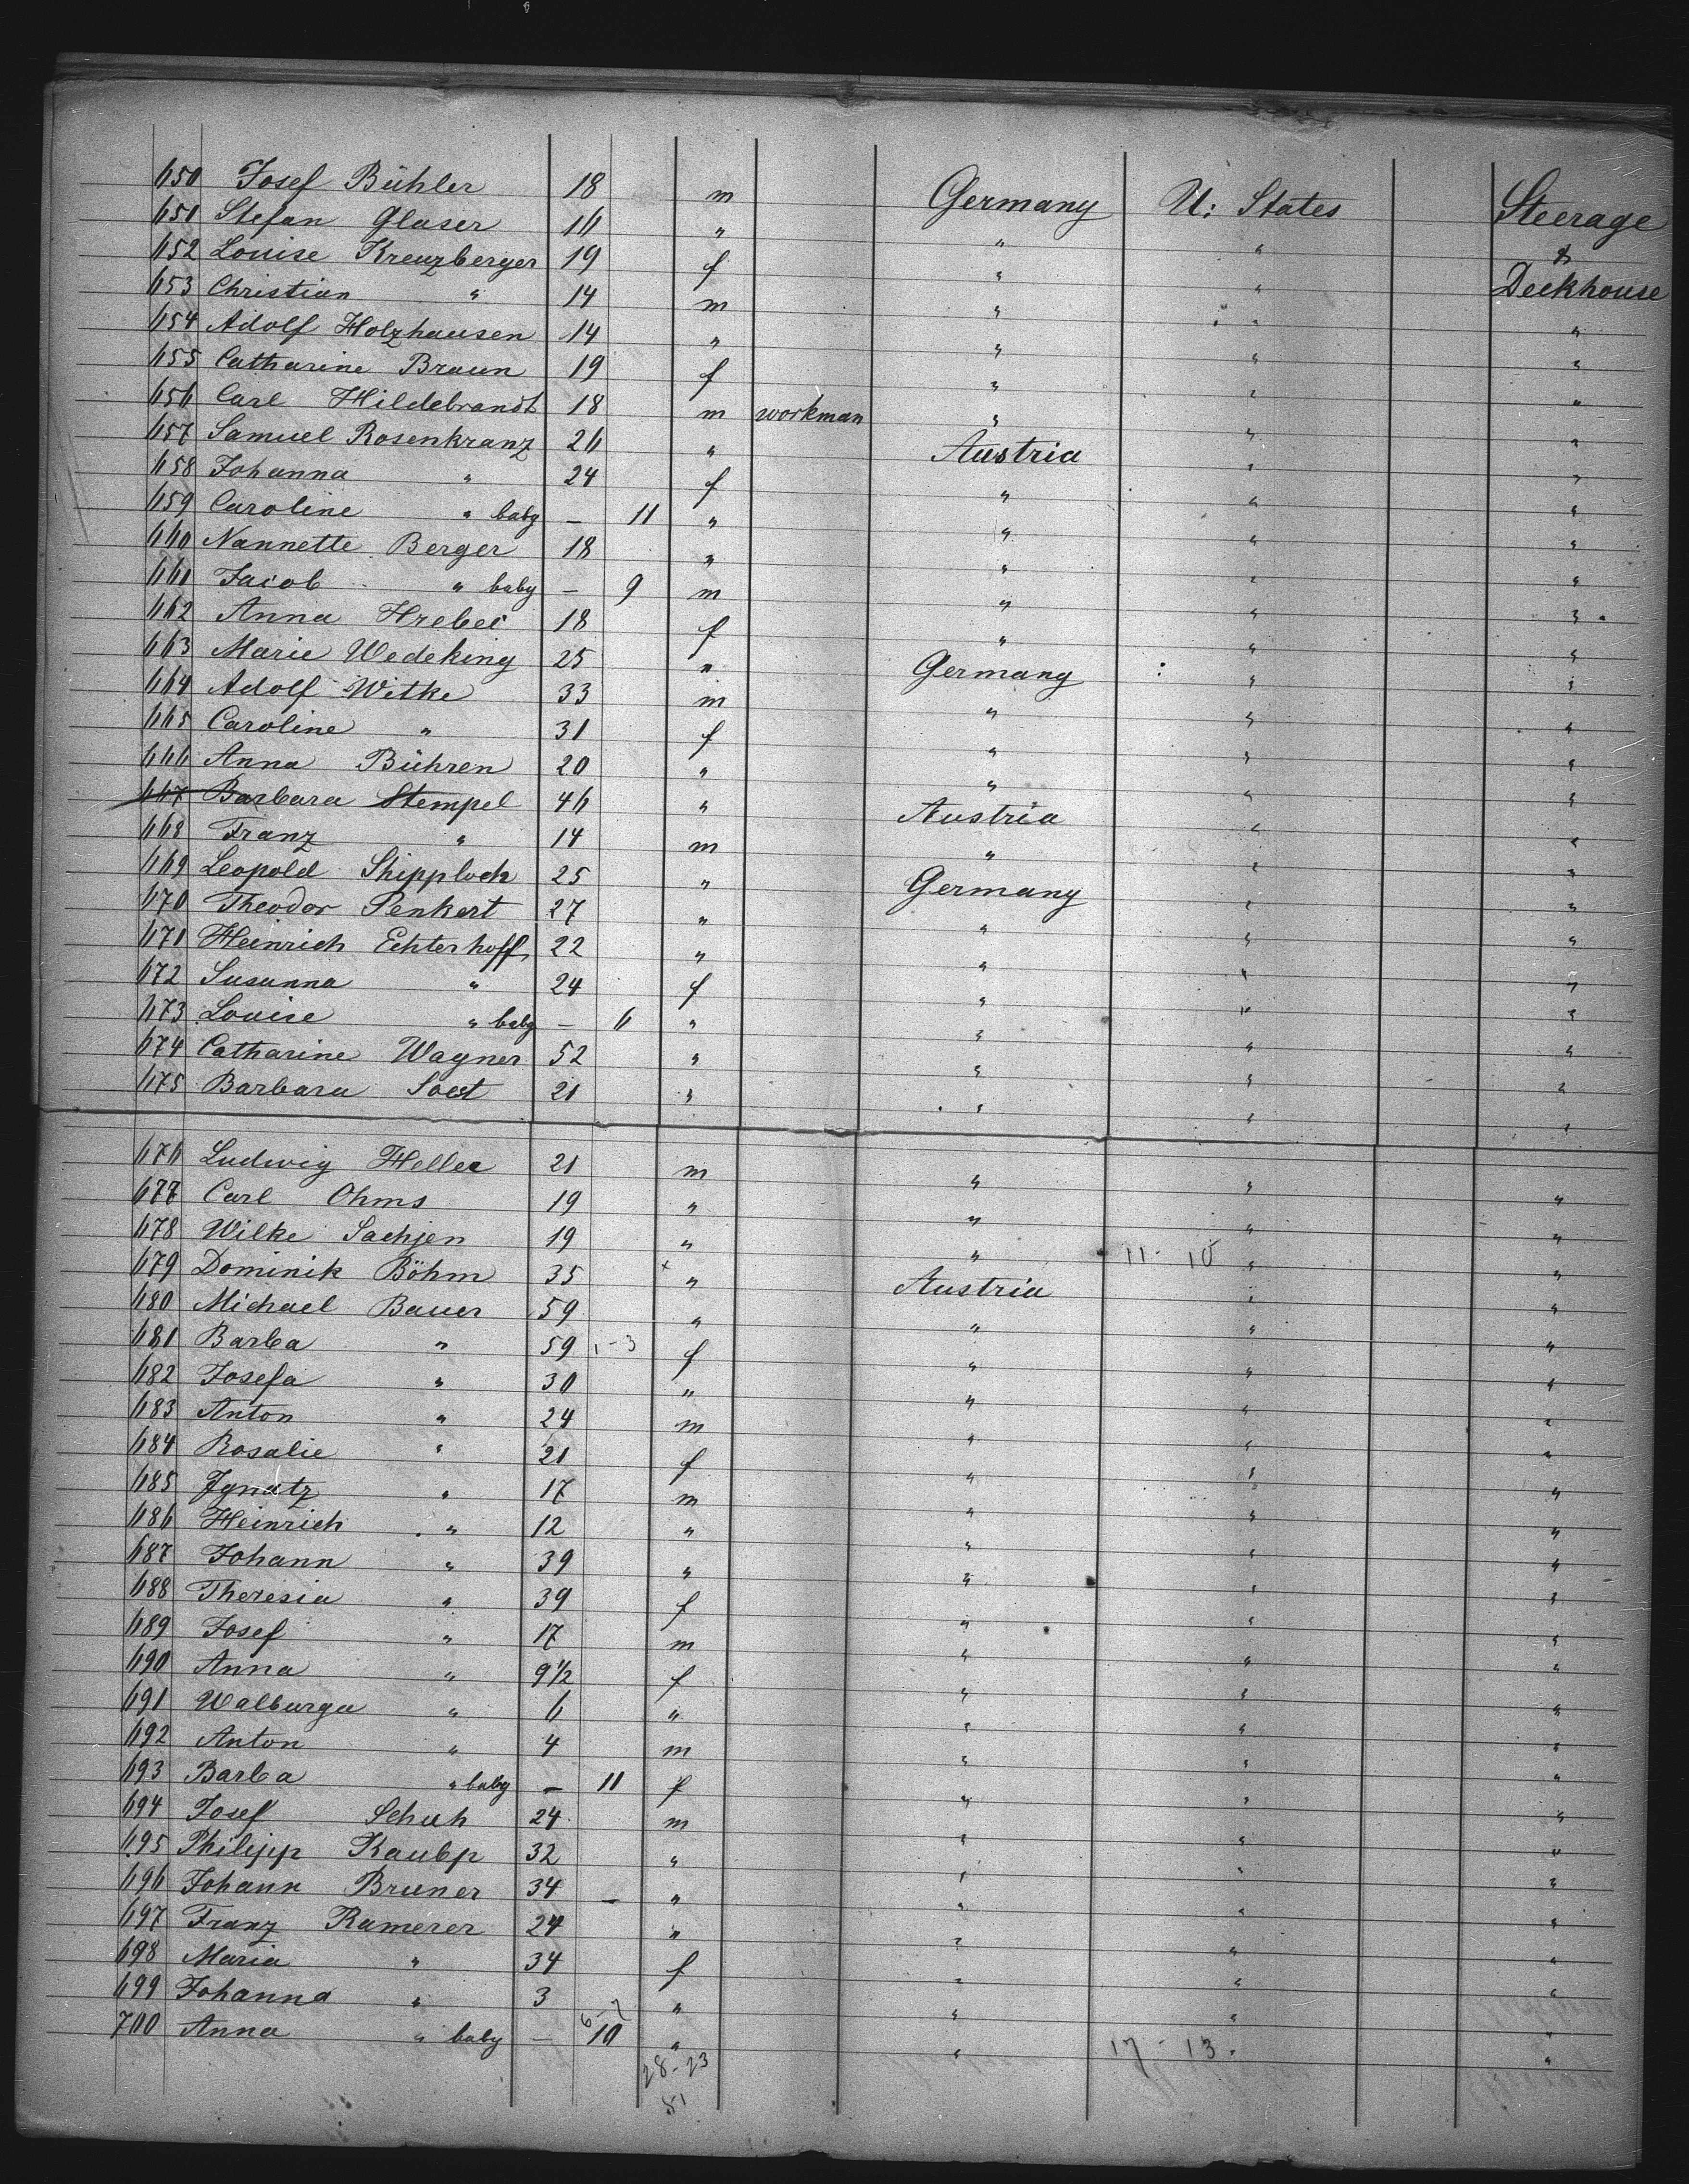 650 Josef Bühler 18 m Germany U: States Steerage
651 Stefan Glaser 16 " " " &
652 Louise Kreuzberger 19 f " " Deckhouse
653 Christian " 14 m " " "
654 Adolf Holzhausen 14 " " " "
655 Catharine Braun 19 f " " "
656 Carl Hildebrandt 18 m workman " " "
657 Samuel Rosenkranz 26 " Austria " "
658 Johanna " 24 f " " "
659 Caroline " baby — 11 " " " "
660 Nannette Berger 18 " " " "
661 Jacob " baby — 9 m " " "
662 Anna Hrebei 18 f " " "
663 Marie Wedeking 25 " Germany " "
664 Adolf Witke 33 m " " "
665 Caroline " 31 f " " "
666 Anna Bühren 20 " " " "
667 Barbara Stempel 46 " Austria " "
668 Franz " 14 m " " "
669 Leopold Shipplock 25 " Germany " "
670 Theodor Penkert 27 " " " "
671 Heinrich Echterhoff 22 " " " "
672 Susanna " 24 f " " "
673 Louise " baby — 6 " " " "
674 Catharine Wagner 52 " " " "
675 Barbara Soest 21 " " " "
676 Ludwig Heller 21 m " " "
677 Carl Ohms 19 " " " "
678 Wilke Sachjen 19 " " 11 - 10 " "
679 Dominik Böhm 35 x " Austria " "
680 Michael Bauer 59 " " " "
681 Barba " 59 1-3 f " " "
682 Josefa " 30 " " " "
683 Anton " 24 m " " "
684 Rosalie " 21 f " " "
685 Jgnatz " 17 m " " "
686 Heinrich " 12 " " " "
687 Johann " 39 " " " "
688 Theresia " 39 f " " "
689 Josef " 17 m " " "
690 Anna " 9 1/2 f " " "
691 Walburga " 6 " " " "
692 Anton " 4 m " " "
693 Barba " baby — 11 f " " "
694 Josef Schuh 24 m " " "
695 Philipp Kaubp 32 " " " "
696 Johann Bruner 34 — " " " "
697 Franz Ramerer 24 " " " "
698 Maria " 34 f " " "
699 Johanna " 3 " " " "
6-7
700 Anna " baby — 10 " " 17 - 13 " "
28-23
51